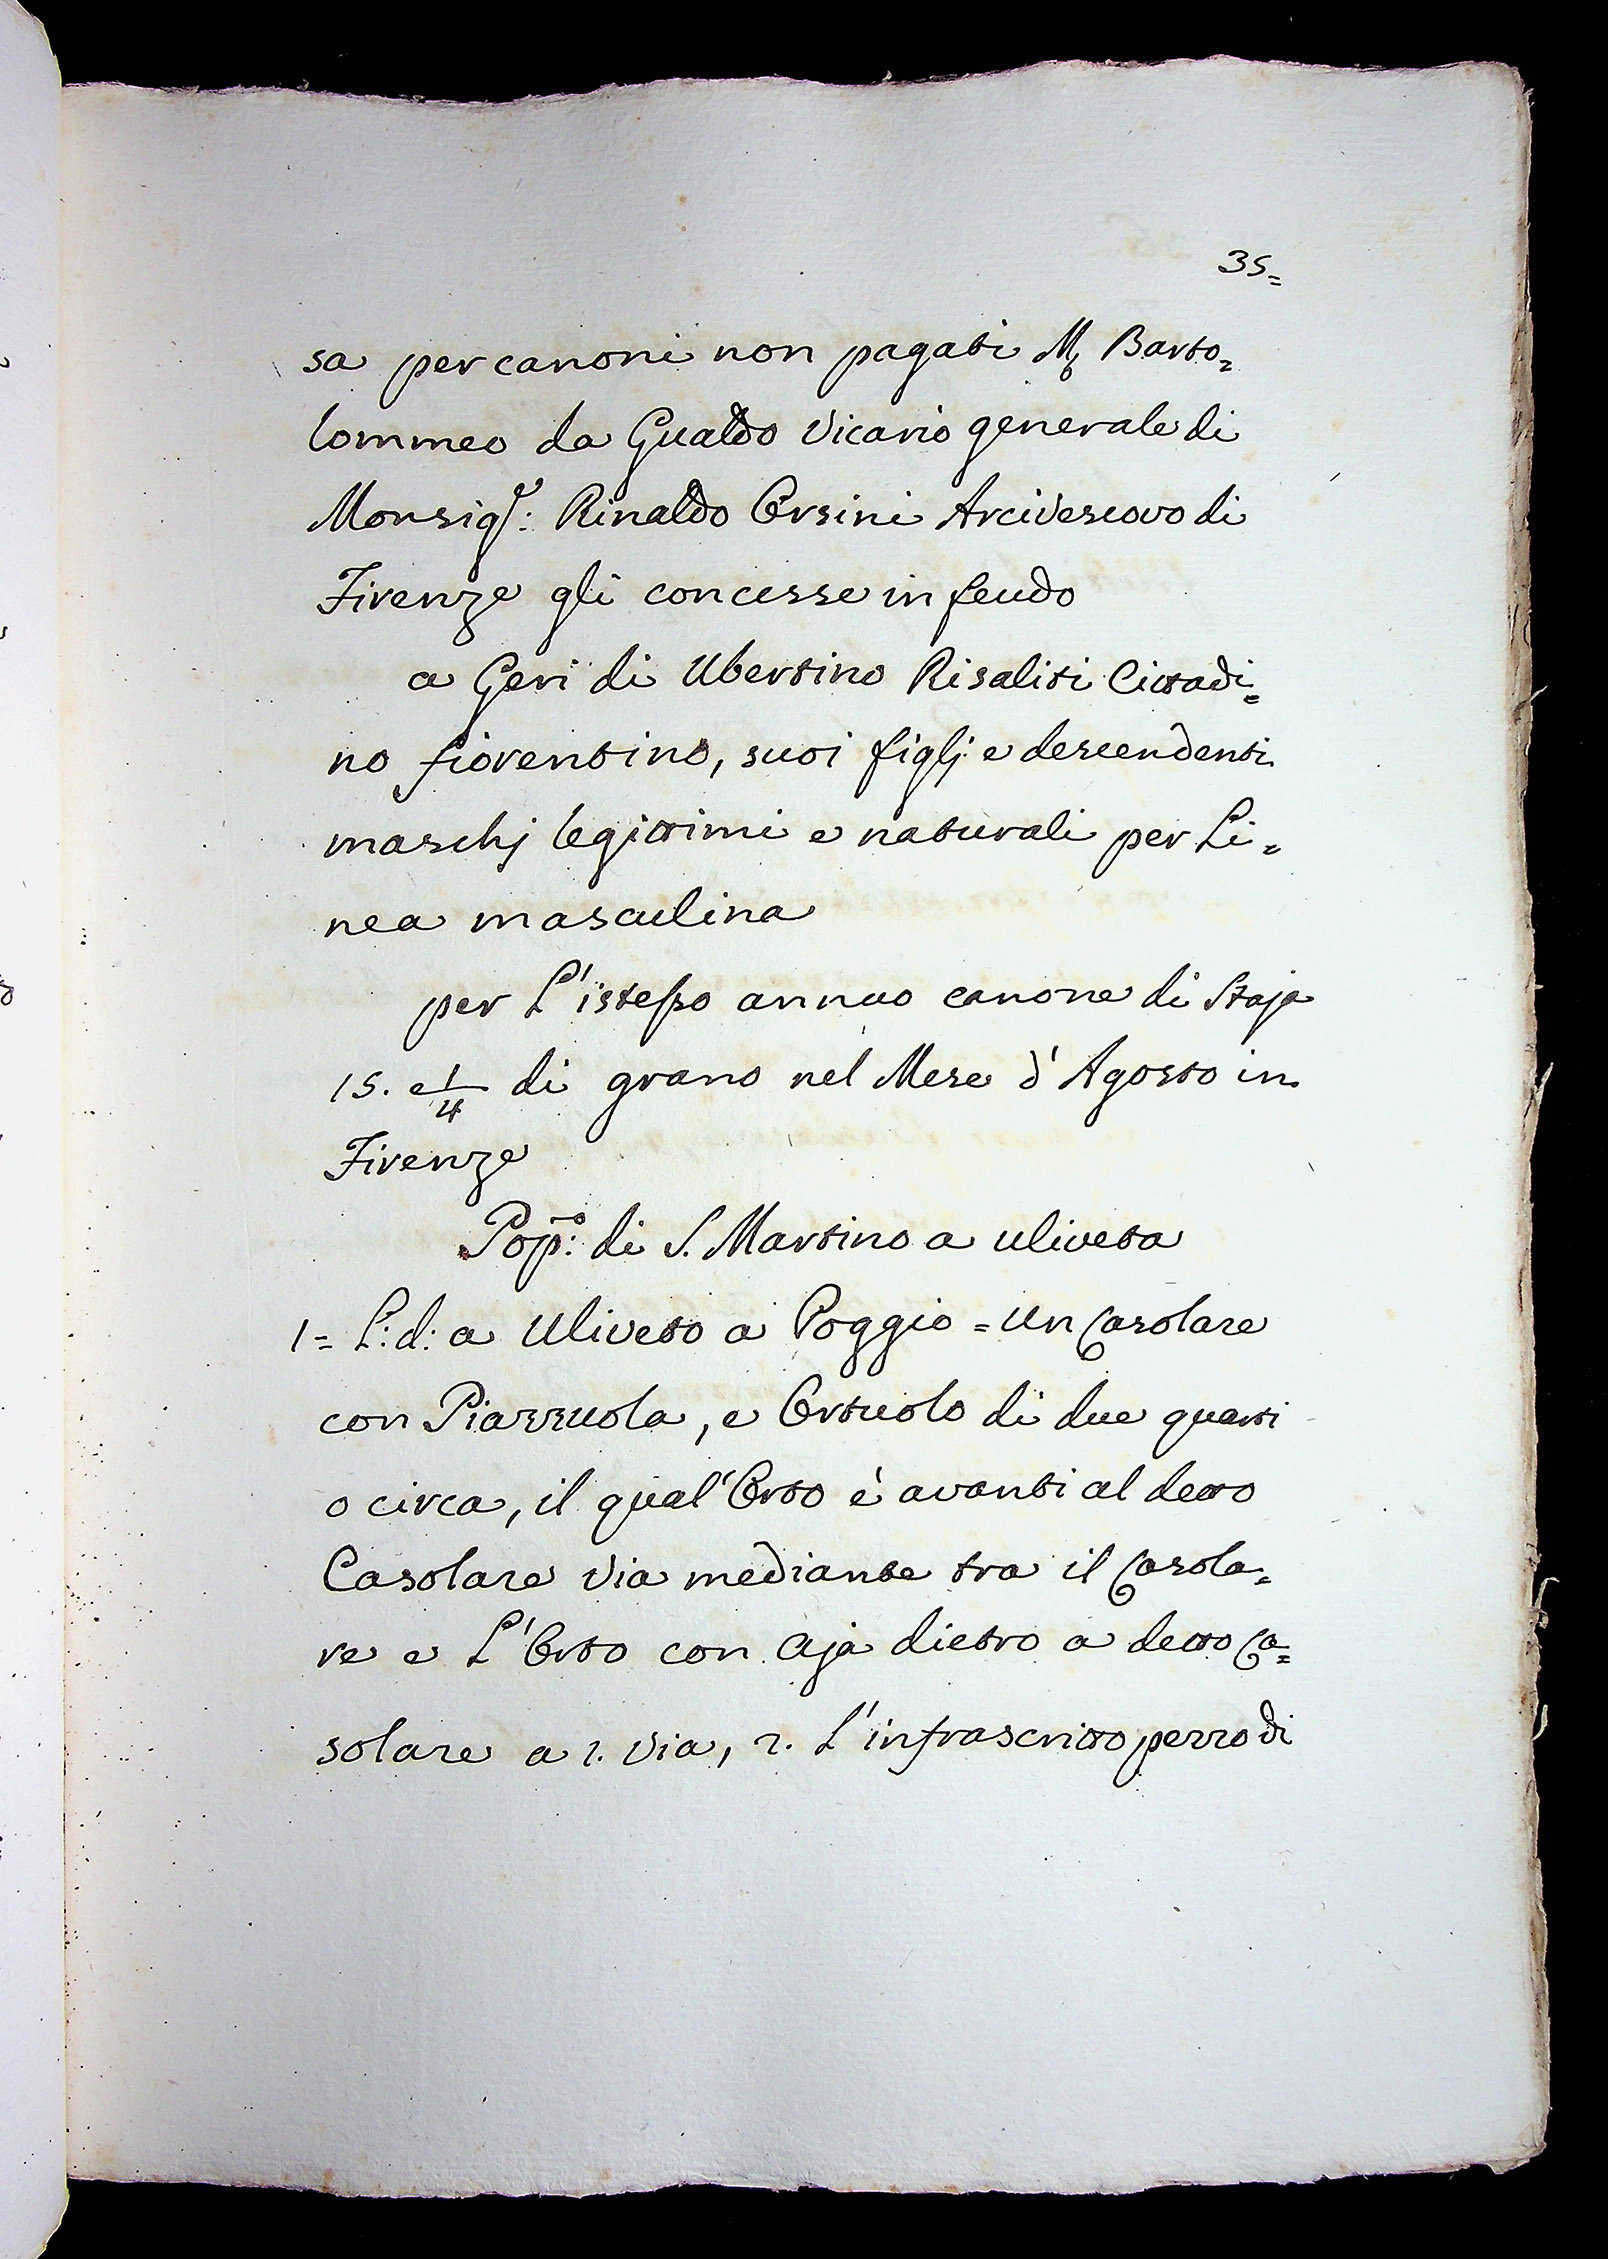 35=
sa per canoni non pagati M. Barto=
lommeo da Gualdo Vicario generale di
Monsig.r: Rinaldo Orsini Arcivescovo di
Firenze gli concesse in feudo
a Geri di Ubertino Risaliti Cittadi=
no fiorentino, suoi figlj e descendenti
maschj legittimi e naturali per Li=
nea masculina
per L'istesso annuo canone di Staja
15. e 1/4 di grano nel Mese d'Agosto in
Firenze
Pop.o: di S. Martino a uliveta
1= L: d: a Uliveto a Poggio = Un Casolare
con Piazzuola, e Ortuolo di due quarti
o circa, il qual'Orto è avanti al detto
Casolare Via mediante tra il Casola=
re e L'Orto con Aja dietro a detto Ca=
solare a 1. Via, 2. L'infrascritto pezzo di